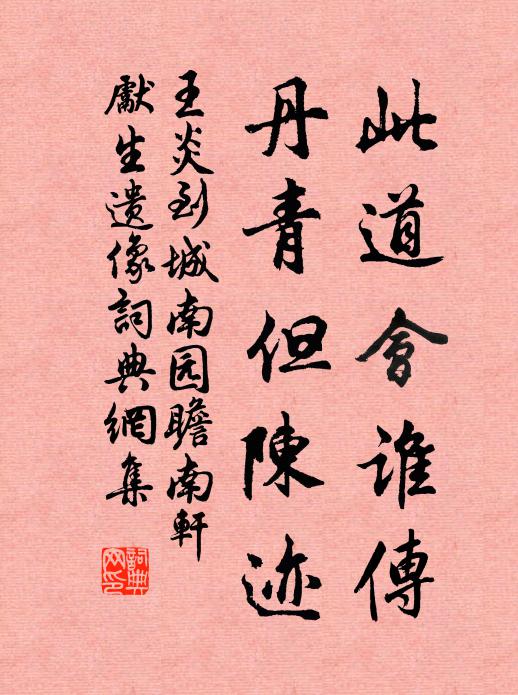 此道會誰傳
丹青但陳迹
王炎到城南园瞻南軒
獻生遗像詞典網集
詞典网印